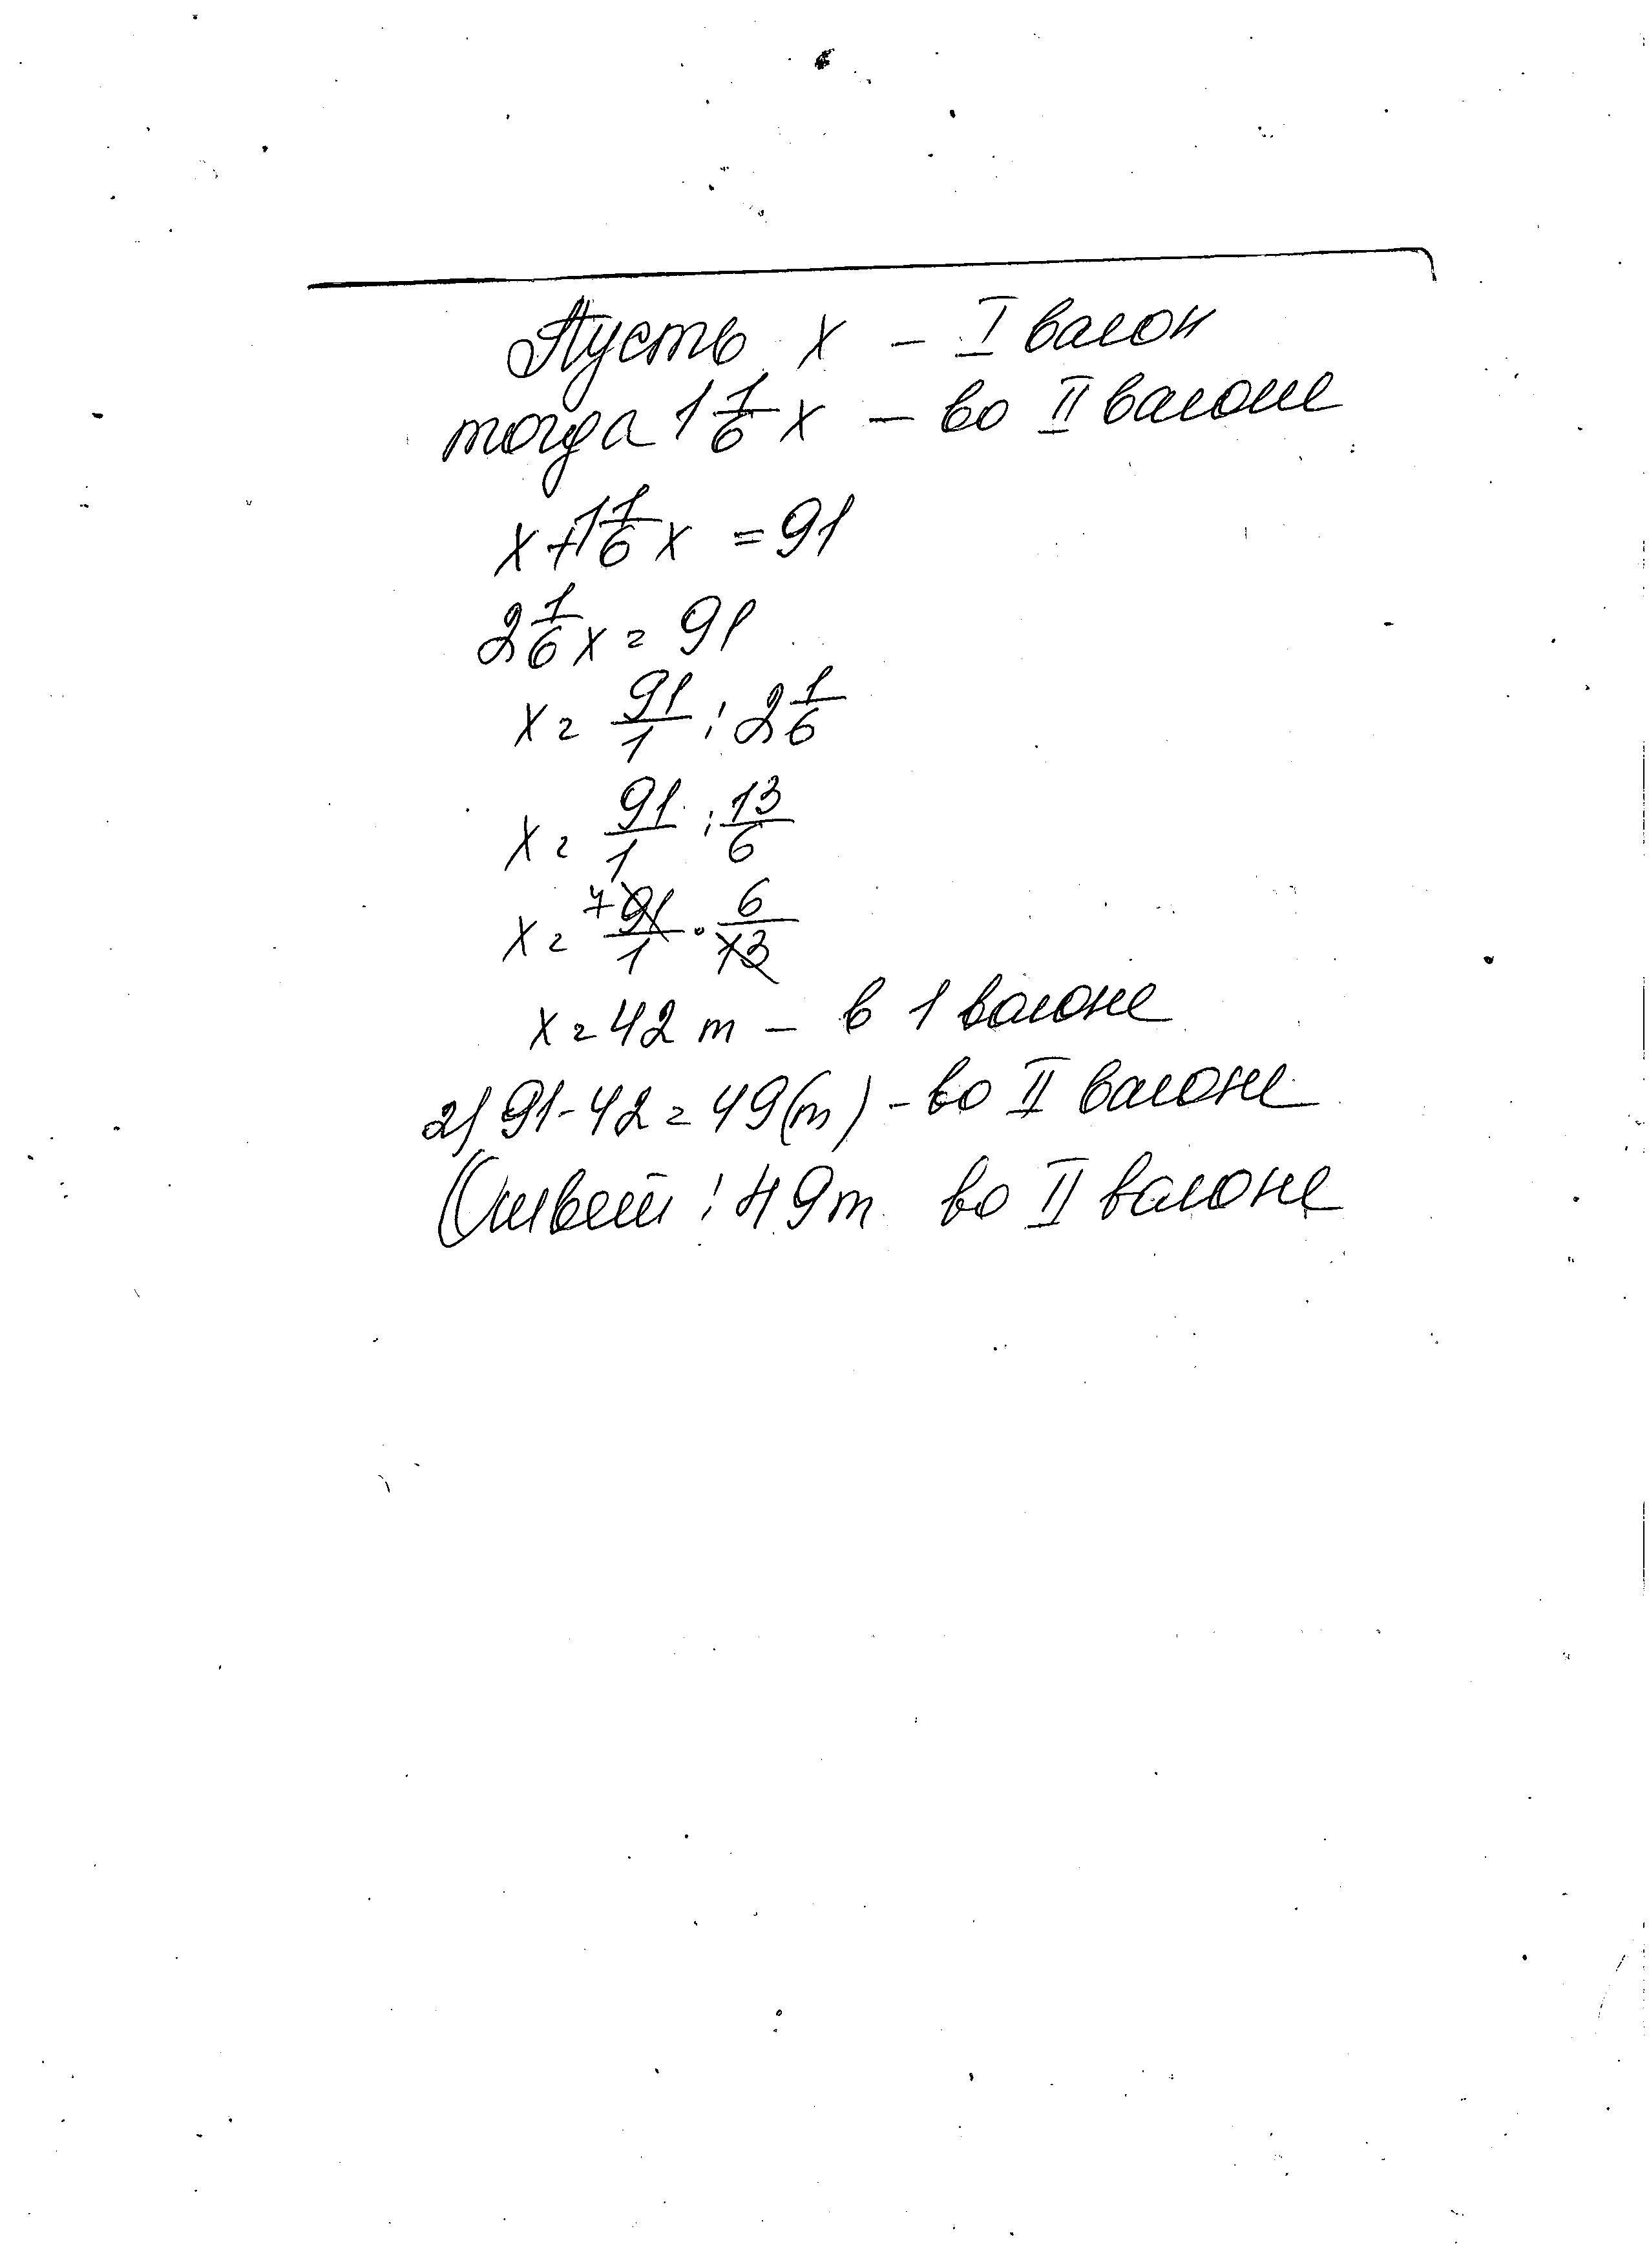 Пусть x - I вагон
тогда 1 1/6 x - во II вагоне
x + 1 1/6 x = 91
2 1/6 x = 91
x = 91/1 : 2 1/6
x = 91/1 : 13/6
x = 7 91/1 · 6/13
x = 42 т - в 1 вагоне
2) 91 - 42 = 49 (т) - во II вагоне
Ответ: 49 т во II вагоне